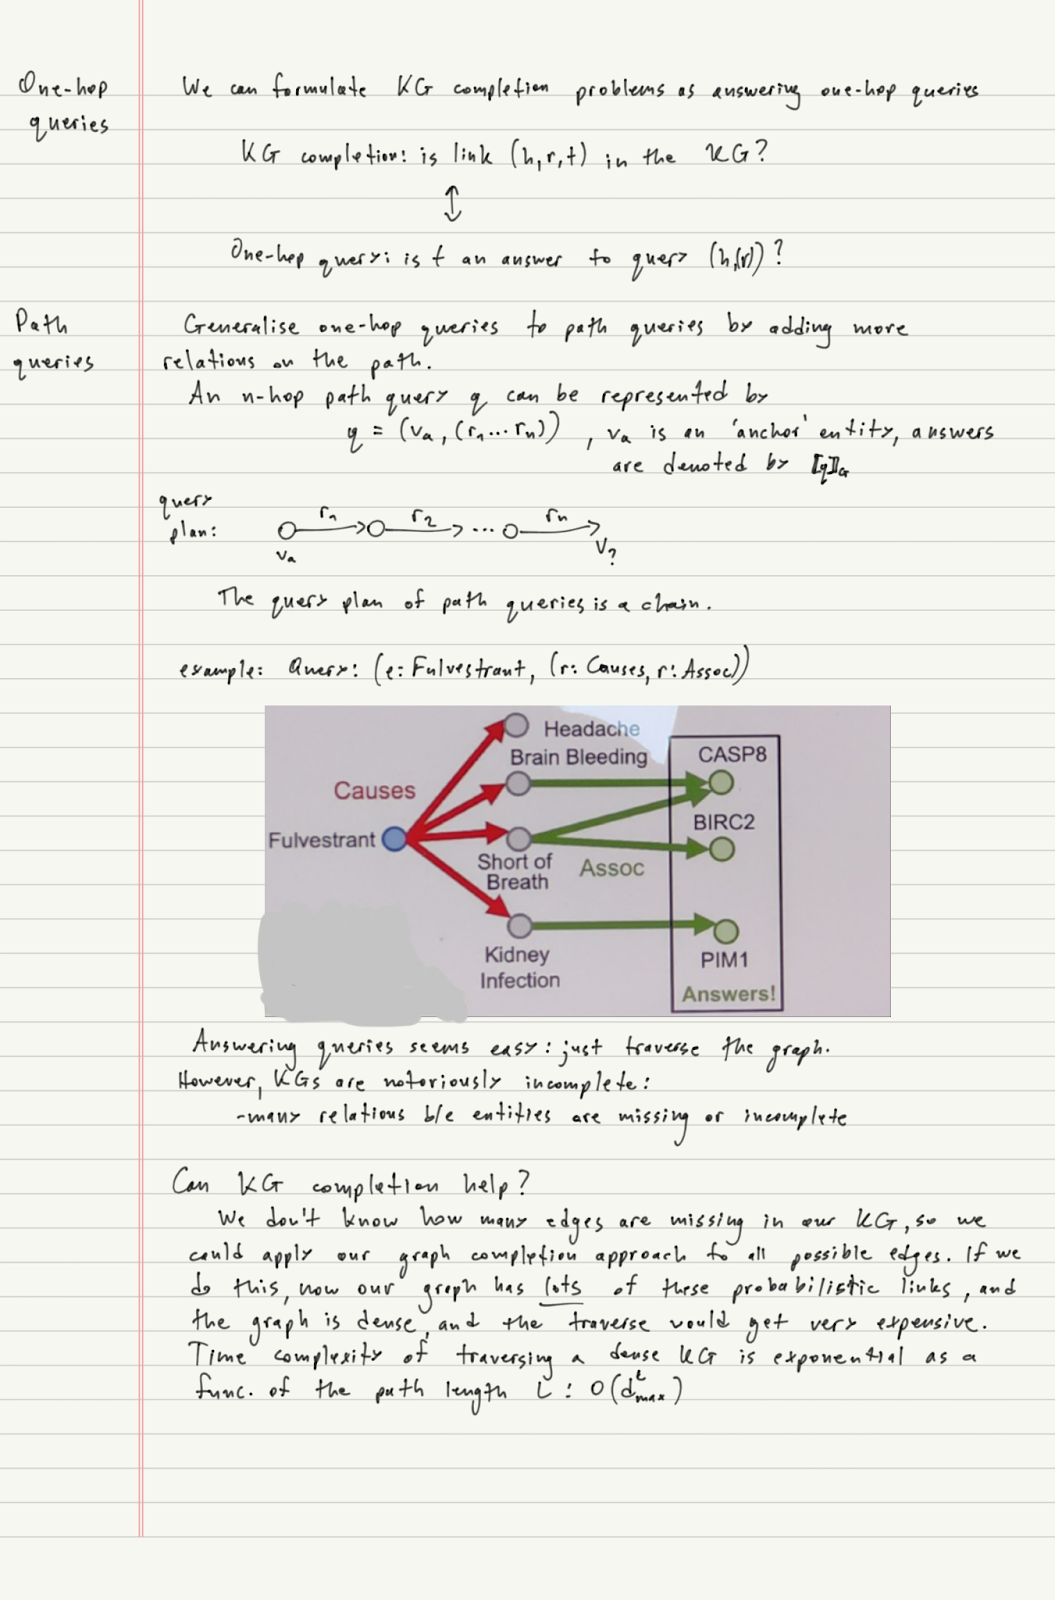 One-hop
queries
We can formulate KG completion problems as answering one-hop queries
KG completion: is link (h,r,t) in the KG?
↕
One-hop query: is t an answer to query (h,(r))?
Path
queries
Generalise one-hop queries to path queries by adding more
relations on the path.
An n-hop path query q can be represented by
q = (va, (r1...rn)) , va is an 'anchor' entity, answers
are denoted by ⟦q⟧G
query
plan:
r1 r2 ... rn
va V?
The query plan of path queries is a chain.
example: Query: (e: Fulvestrant, (r: Causes, r: Assoc))
Headache
Brain Bleeding
CASP8
Causes
BIRC2
Fulvestrant
Short of
Breath
Assoc
Kidney
Infection
PIM1
Answers!
Answering queries seems easy: just traverse the graph.
However, KGs are notoriously incomplete:
-many relations b/e entities are missing or incomplete
Can KG completion help?
We don't know how many edges are missing in our KG, so we
could apply our graph completion approach to all possible edges. If we
do this, now our graph has lots of these probabilistic links, and
the graph is dense, and the traverse would get very expensive.
Time complexity of traversing a dense KG is exponential as a
func. of the path length L : O(d^L_max)